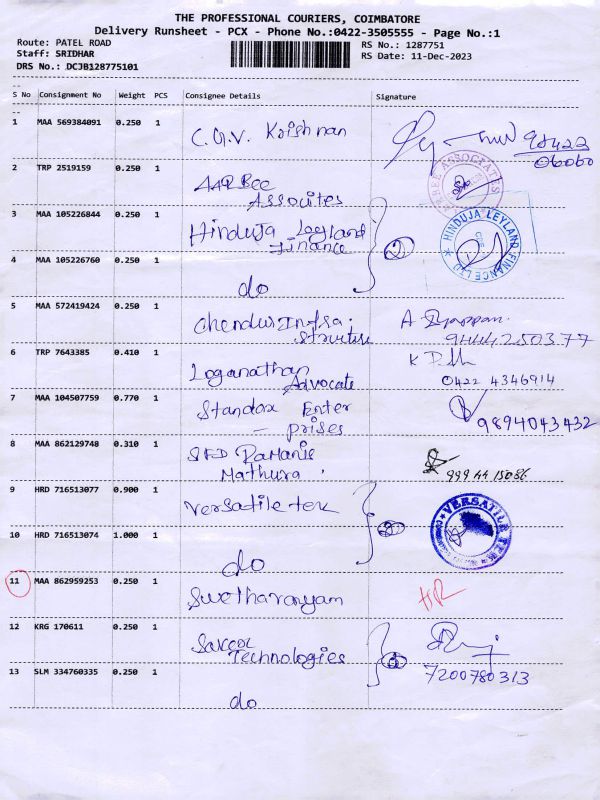 THE PROFESSIONAL COURIERS, COIMBATORE
Delivery Runsheet - PCX - Phone No.:0422-3505555 - Page No.:1
Route: PATEL ROAD
Staff: SRIDHAR
DRS No.: DCJB128775101
RS No.: 1287751
RS Date: 11-Dec-2023
S No Consignment No Weight PCS Consignee Details Signature
1 MAA 569384091 0.250 1 C.G.V. Krishnan 98422
06060
2 TRP 2519159 0.250 1 AARBee
Assocites
ASSOCIATES
3 MAA 105226844 0.250 1 Hinduja Leyland
Finance
2
HINDUJA LEYLAND FINANCE LTD
4 MAA 105226760 0.250 1
do
5 MAA 572419424 0.250 1 Chendur Infra.
A. Iyappan.
9444250377
6 TRP 7643385 0.410 1 Loganathan
Advocate
0422 4346914
7 MAA 104507759 0.770 1 Standox Enter
- prises
9894043432
8 MAA 862129748 0.310 1
Mathura.
999 44 15086
9 HRD 716513077 0.900 1 Versatile tek
2
VERSATILE TEK
10 HRD 716513074 1.000 1
do
11 MAA 862959253 0.250 1 Swetharanyam
12 KRG 170611 0.250 1
Technologies
7200780313
13 SLM 334760335 0.250 1
do